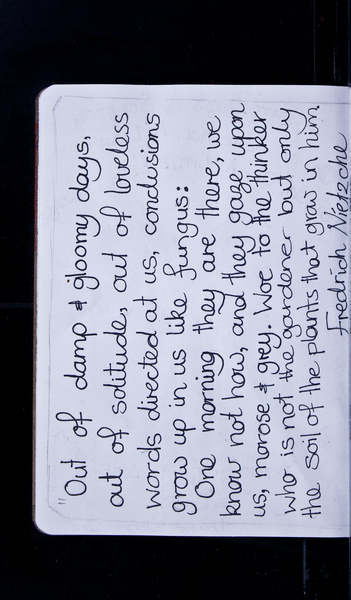 "Out of damp & gloomy days,
out of solitude, out of loveless
words directed at us, conclusions
grow up in us like fungus:
One morning they are there, we
know not how, and they gaze upon
us, morose & grey. Woe to the thinker
who is not the gardener but only
the soil of the plants that grow in him.
Fredrich Nietzsche